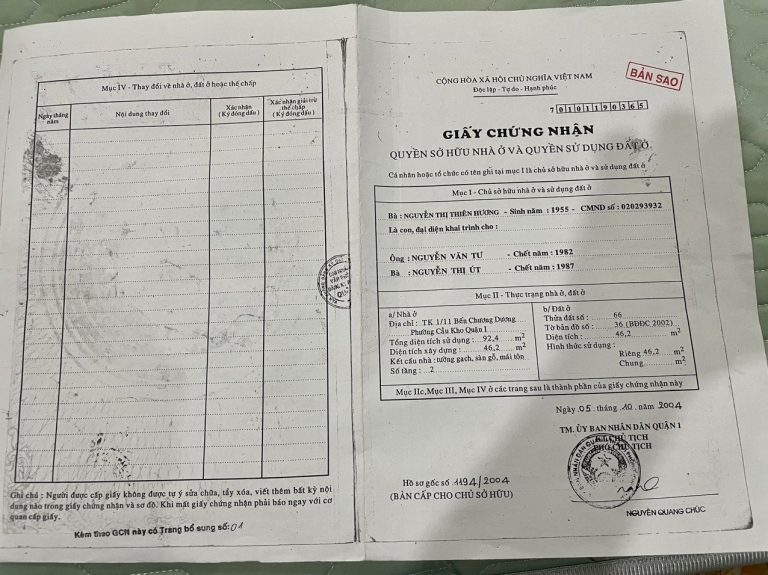 Mục IV - Thay đổi về nhà ở, đất ở hoặc thế chấp
Ngày tháng năm
Nội dung thay đổi
Xác nhận (Ký đóng dấu)
Xác nhận giải trừ thế chấp (Ký đóng dấu)
Ghi chú : Người được cấp giấy không được tự ý sửa chữa, tẩy xóa, viết thêm bất kỳ nội
dung nào trong giấy chứng nhận và sơ đồ. Khi mất giấy chứng nhận phải báo ngay với cơ
quan cấp giấy.
Kèm theo GCN này có Trang bổ sung số: 01
CỘNG HÒA XÃ HỘI CHỦ NGHĨA VIỆT NAM
Độc lập - Tự do - Hạnh phúc
BẢN SAO
7 0101190365
GIẤY CHỨNG NHẬN
QUYỀN SỞ HỮU NHÀ Ở VÀ QUYỀN SỬ DỤNG ĐẤT Ở
Cá nhân hoặc tổ chức có tên ghi tại mục I là chủ sở hữu nhà ở và sử dụng đất ở
Mục I - Chủ sở hữu nhà ở và sử dụng đất ở
Bà : NGUYỄN THỊ THIÊN HƯƠNG - Sinh năm : 1955 - CMND số : 020293932
Là con, đại diện khai trình cho :
Ông : NGUYỄN VĂN TƯ - Chết năm : 1982
Bà : NGUYỄN THỊ ÚT - Chết năm : 1987
Mục II - Thực trạng nhà ở, đất ở
a/ Nhà ở
Địa chỉ : TK 1/11 Bến Chương Dương
Phường Cầu Kho Quận 1
Tổng diện tích sử dụng : 92,4 m2
Diện tích xây dựng : 46,2 m2
Kết cấu nhà : tường gạch, sàn gỗ, mái tôn
Số tầng : 2
b/ Đất ở
Thửa đất số : 66
Tờ bản đồ số : 36 (BĐĐC 2002)
Diện tích : 46,2 m2
Hình thức sử dụng :
Riêng 46,2 m2
Chung m2
Mục IIc, Mục III, Mục IV ở các trang sau là thành phần của giấy chứng nhận này
Ngày 05 tháng 10 năm 2004
TM. ỦY BAN NHÂN DÂN QUẬN 1
KT. CHỦ TỊCH
PHÓ CHỦ TỊCH
Hồ sơ gốc số 1194/2004
(BẢN CẤP CHO CHỦ SỞ HỮU)
NGUYỄN QUANG CHÚC